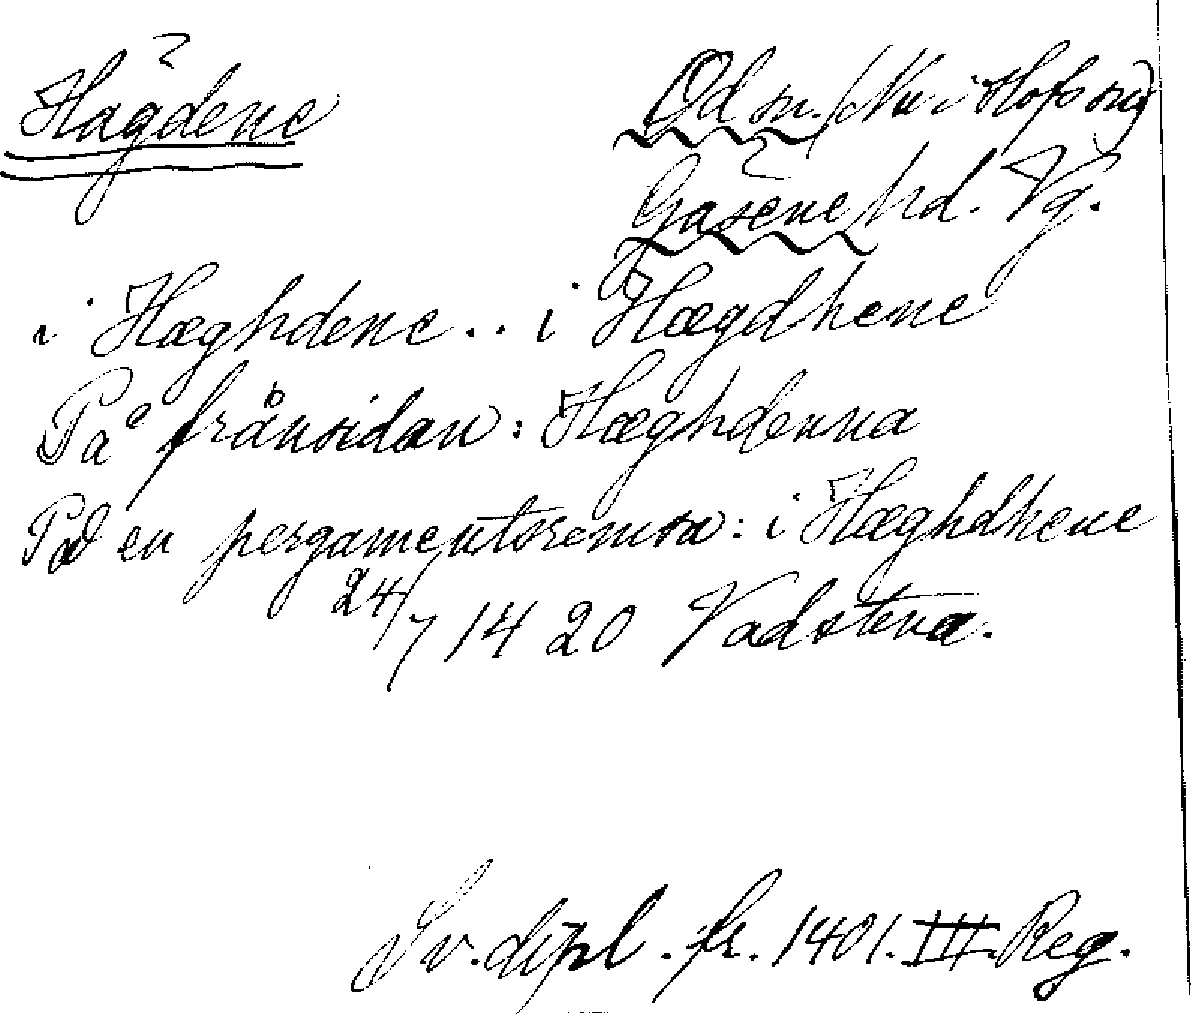 Hägdene Od sn. (Nu i Hofs sn)
Gäsene hd. Vg.
i Hæghdene .. i Hægdhene
På frånsidan: Hæghdenna
På en pergamentsremsa: i Hæghdhene
24/7 1420 Vadstena.
Sv. dipl. fr. 1401. III. Reg.